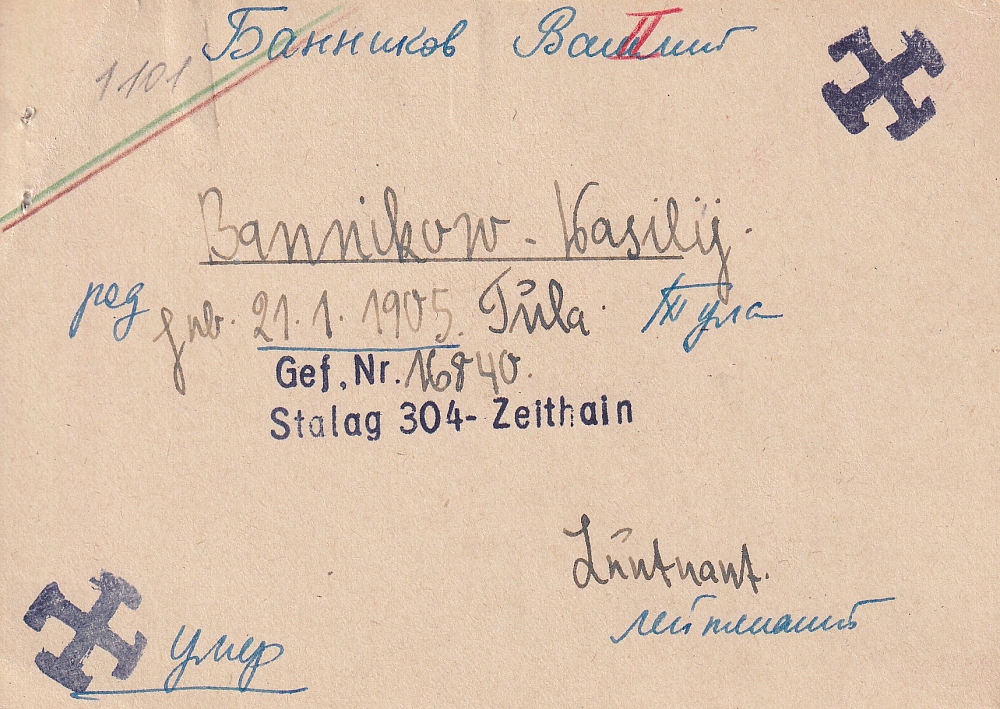 Банников Василий
II
1101
Bannikow - Wasilij.
род geb. 21.1.1905. Tŭla. Тула
Gef. Nr. 16840.
Stalag 304- Zeithain
Leutnant.
лейтенант
умер